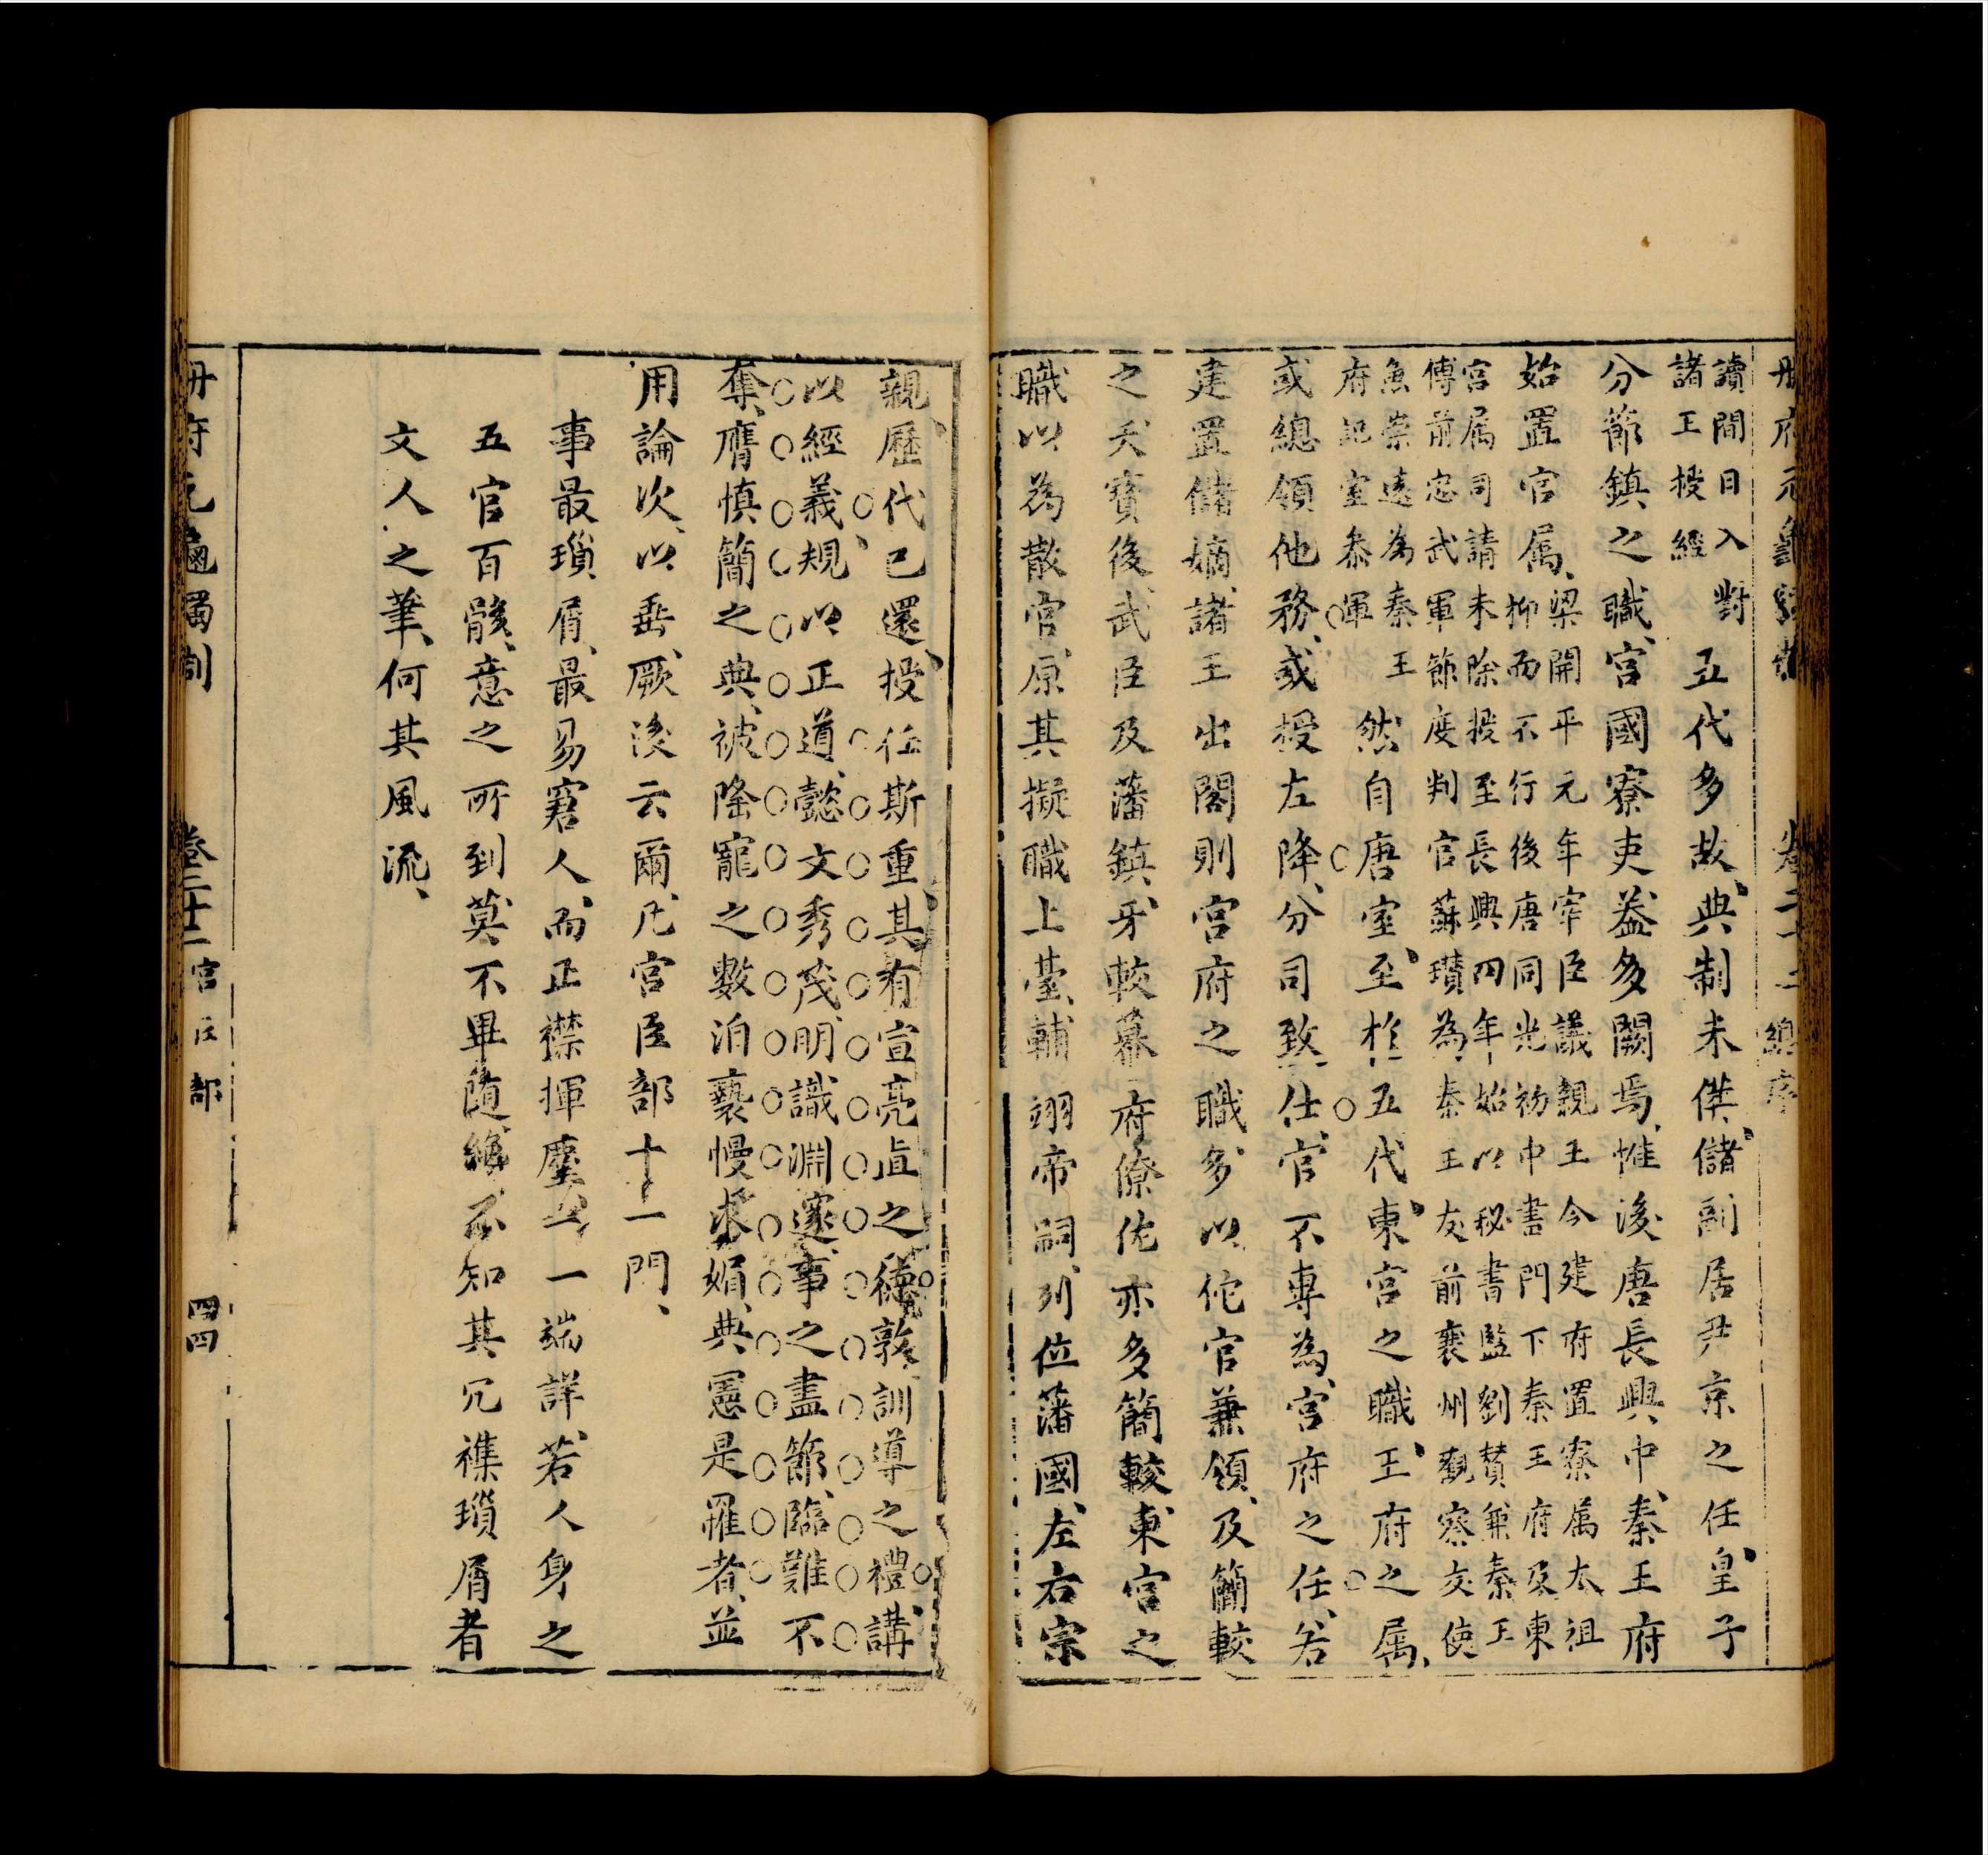 讀間日入對
諸王授經
五代多故典制未備儲副居尹京之任皇子
分節鎮之職宮國寮吏葢多闕焉惟後唐長興中秦王府
始置官属
梁開平元年宰臣議親王今建府置寮属太祖
抑而不行後唐同光初中書門下秦王府及東
宮属司請未除授至長興四年始以秘書監劉贊兼秦王
傅前忠武軍節度判官蘇瓚為秦王友前襄州觀察支使
魚崇遠為秦王
府記室叅軍
然自唐室至於五代東宮之職王府之属
或總領他務或授左降分司致仕官不專為宮府之任若
建置儲嫡諸王出閣則宮府之職多以佗官兼領及簡較
之天寳後武臣及藩鎮牙較幕府僚佐亦多簡較東宮之
職以為散官原其擬職上臺輔翊帝嗣列位藩國左右宗
親歷代已還授任斯重其有宣亮直之德敦訓導之禮講
以經義規以正道懿文秀茂明識淵邃事之盡節臨難不
奪膺慎簡之典被隆寵之數洎褻慢求媚典憲是罹者並
用論次以垂厥後云爾凡宮臣部十一門
事最瑣屑最易窘人而正襟揮麈一一端詳若人身之
五官百骸意之所到莫不畢随絶不知其冗襍瑣屑者
文人之筆何其風流
冊府元龜獨制
卷二十二
宮臣部
四四